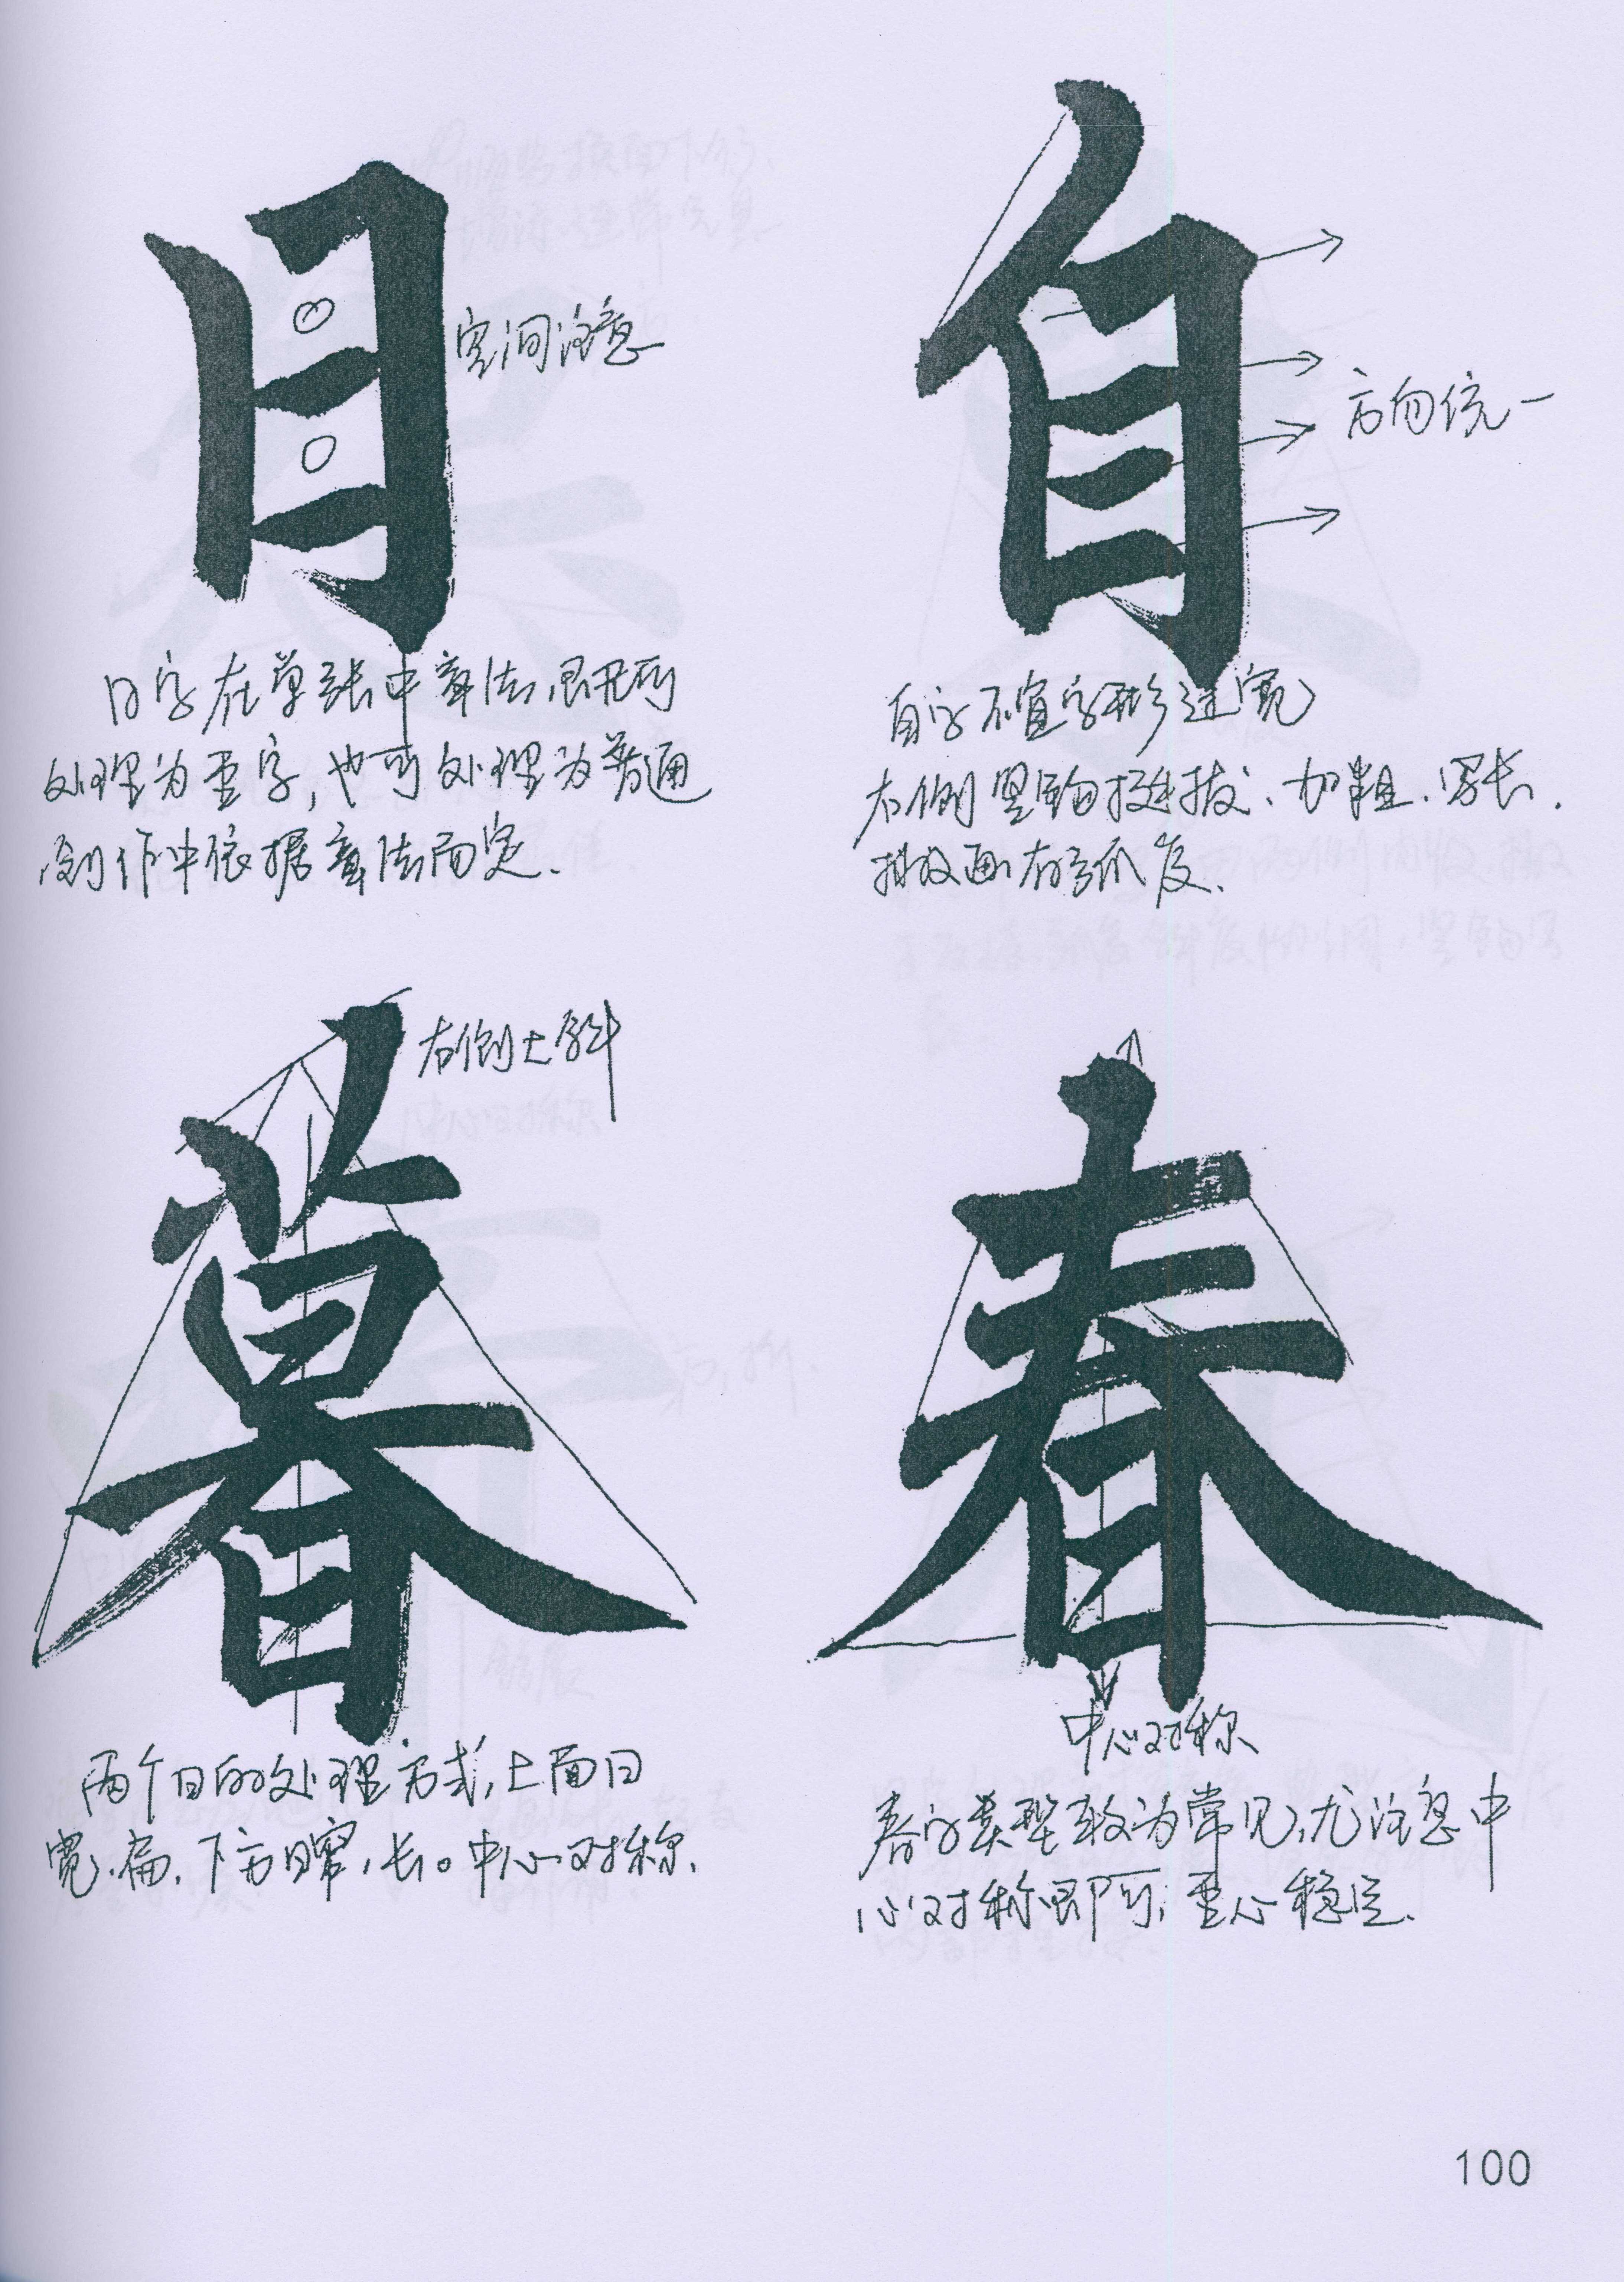 日
空间注意
日字在单张中章法,既可
处理为重字,也可处理为普通
创作中依据章法而定.
自
方向统一
自字不宜字形过宽
右侧竖钩挺拔、加粗、写长.
撇画有弧度.
暮
右侧上斜
两个日的处理方式,上面日
宽、扁、下方日窄、长。中心对称.
春
中心对称
春字类型较为常见,尤注意中
心对称即可,重心稳定.
100